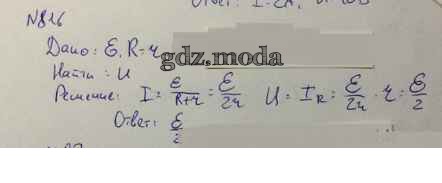 Ответ: I=2А, U=10В
N826
Дано: ℰ, R=r
gdz.moda
Найти: U
Решение: I = ℰ/(R+r) = ℰ/2r U = IR = ℰ/2r · r = ℰ/2
Ответ: ℰ/2